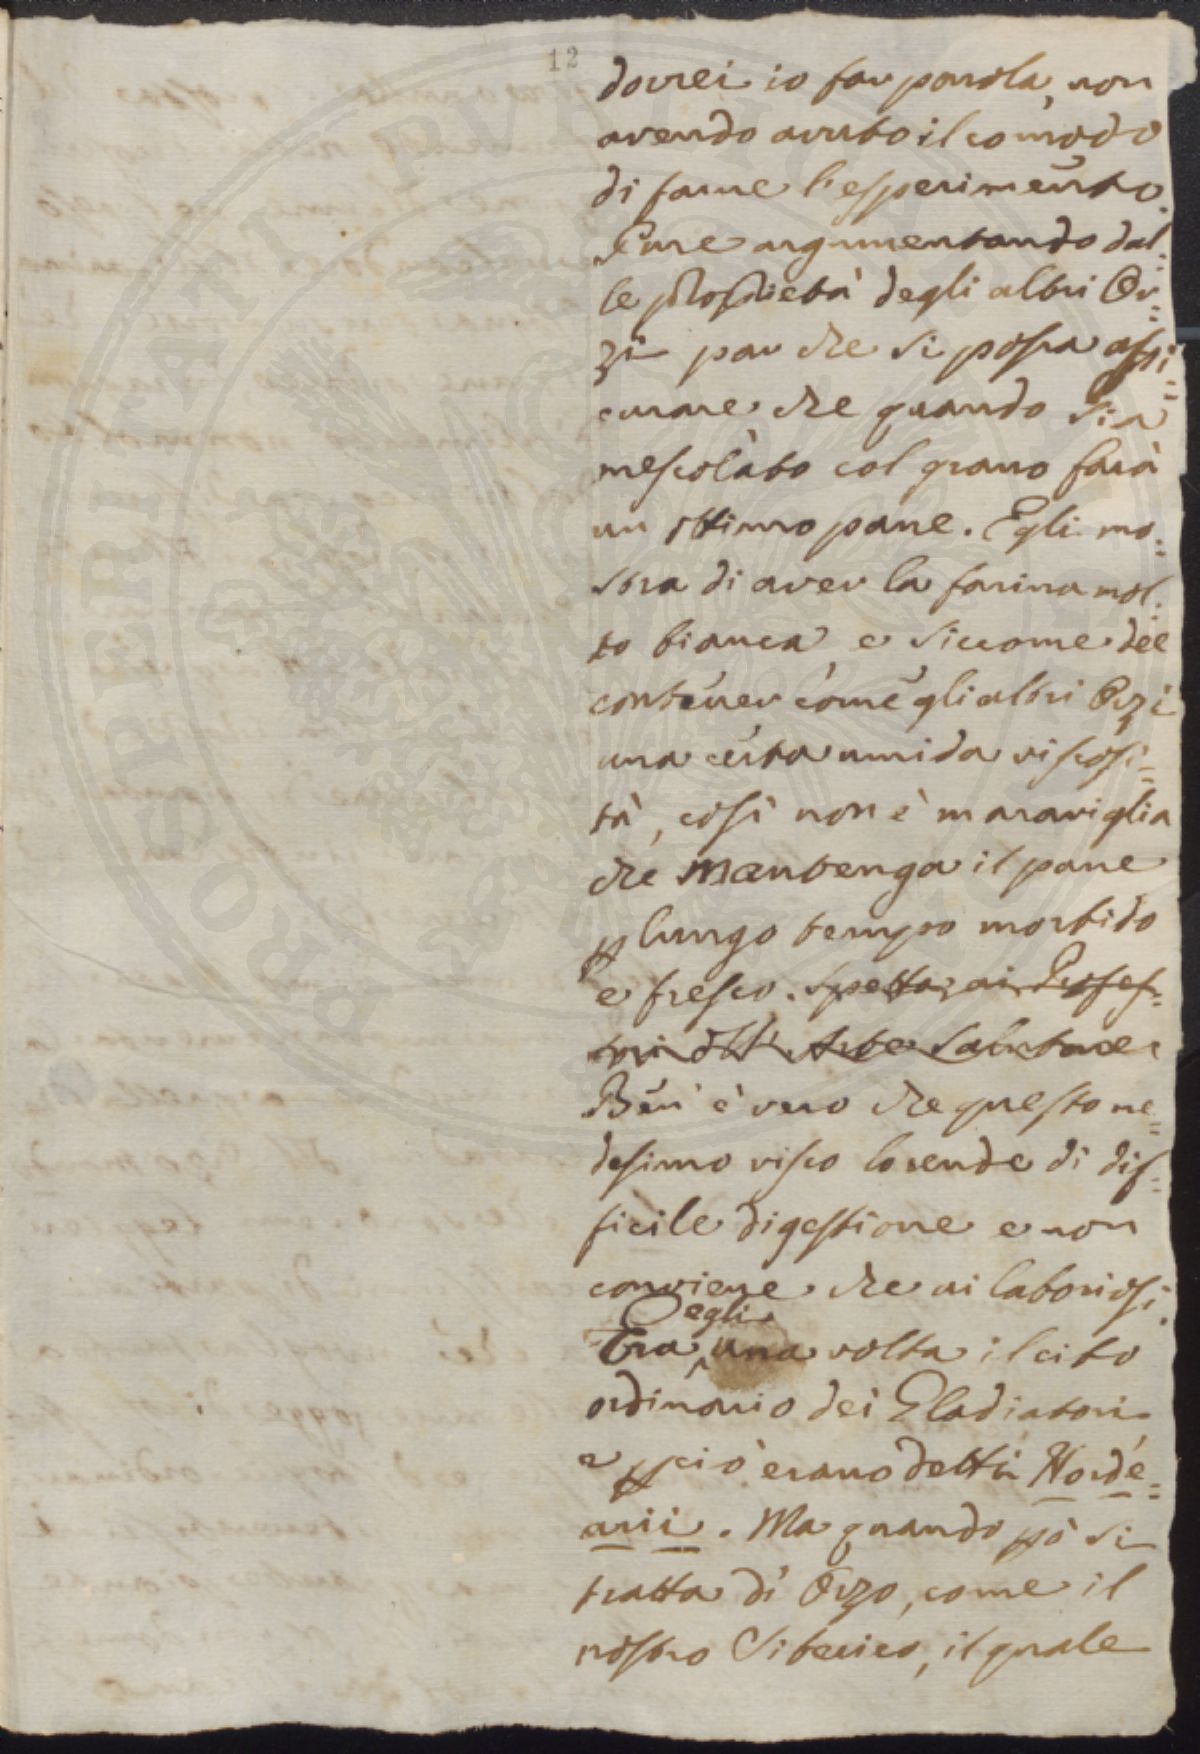 12
dovrei io far parola, non
avendo avuto il comodo
di farne l'esperimento.
Pure argumentando dal=
le proprietà degli altri Or=
zi par che si possa assi=
curare che quando sia
mescolato col grano farà
un ottimo pane. Egli mo=
stra di aver la farina mol=
to bianca, e siccome dee
contener come gli altri Orzi
una certa umida viscosi=
tà, così non è maraviglia
che mantenga il pane
p lungo tempo morbido
e fresco. Spetta ai Profes=
sori dell'Arte Salutare
Ben è vero che questo me=
desimo visco lo rende di dif=
ficile digestione e non
conviene che ai laboriosi.
egli
Era una volta il cibo
ordinario dei Gladiatori,
e p ciò erano detti Horde=
arii. Ma quando pò si
tratta di Orzo, come il
nostro Siberico, il quale
PROSPERITATI PVBLICAE